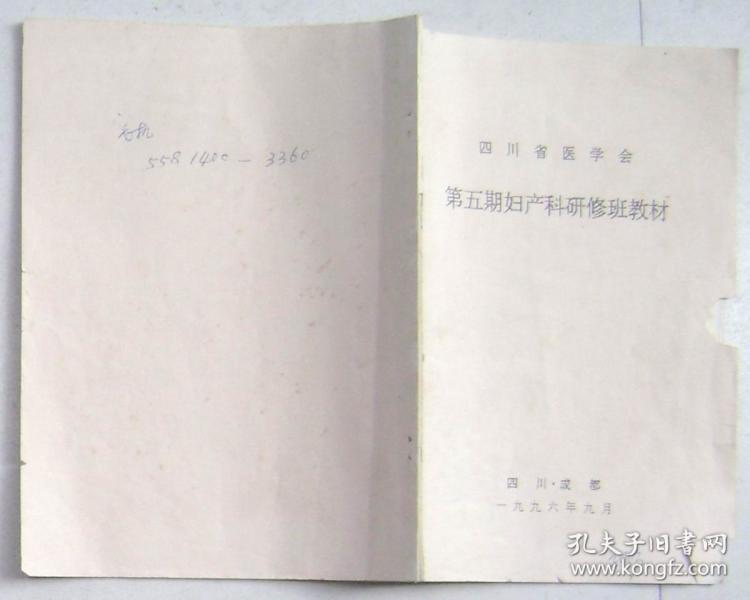 558 1400 — 3360
四川省医学会
第五期妇产科研修班教材
四川·成都
一九九六年九月
孔夫子旧书网
www.kongfz.com